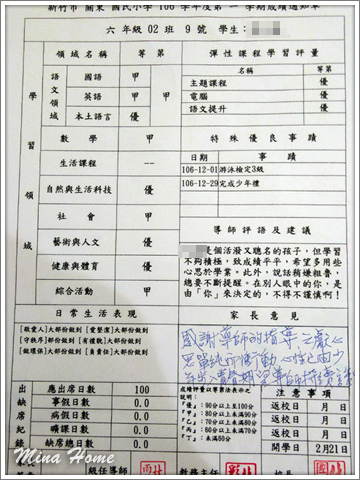 新竹市 關東 國民小學 106 學年度第 一 學期成績通知單
六 年級 02 班 9 號 學生：
學習領域
領域名稱 等第
語文領域
國語 甲
英語 甲
本土語言 優
數學 甲
生活課程 --
自然與生活科技 優
社會 甲
藝術與人文 優
健康與體育 優
綜合活動 甲
彈性課程學習評量
名稱 等第
主題課程 優
電腦 優
語文提升 優
特殊優良事蹟
日期 事蹟
106-12-01 游泳檢定3級
106-12-29 完成少年禮
導師評語及建議
是個活潑又聰名的孩子，但學習
不夠積極，致成績平平，希望多用些
心思於學業。此外，說話稍嫌粗魯，
總要不斷提醒。在別人眼中的你，是
由「你」來決定的，不得不謹慎啊！
日常生活表現
[敬愛人]大部份做到 [愛整潔]大部份做到
[守秩序]部份做到 [有禮貌]大部份做到
[做環保]大部份做到 [負責任]大部份做到
家長意見
感謝導師的指導
出缺席紀錄
應出席日數 100
事假日數 0.0
病假日數 0.0
曠課日數 0.0
缺席總日數 0.0
成績評量以等第法表示之
『優』：90分以上至100分
『甲』：80分以上未滿90分
『乙』：70分以上未滿80分
『丙』：60分以上未滿70分
『丁』：未滿60分
注意事項
返校日 月 日
返校日 月 日
開學日 2月21日
級任導師
教務主任
校長
Mina Home